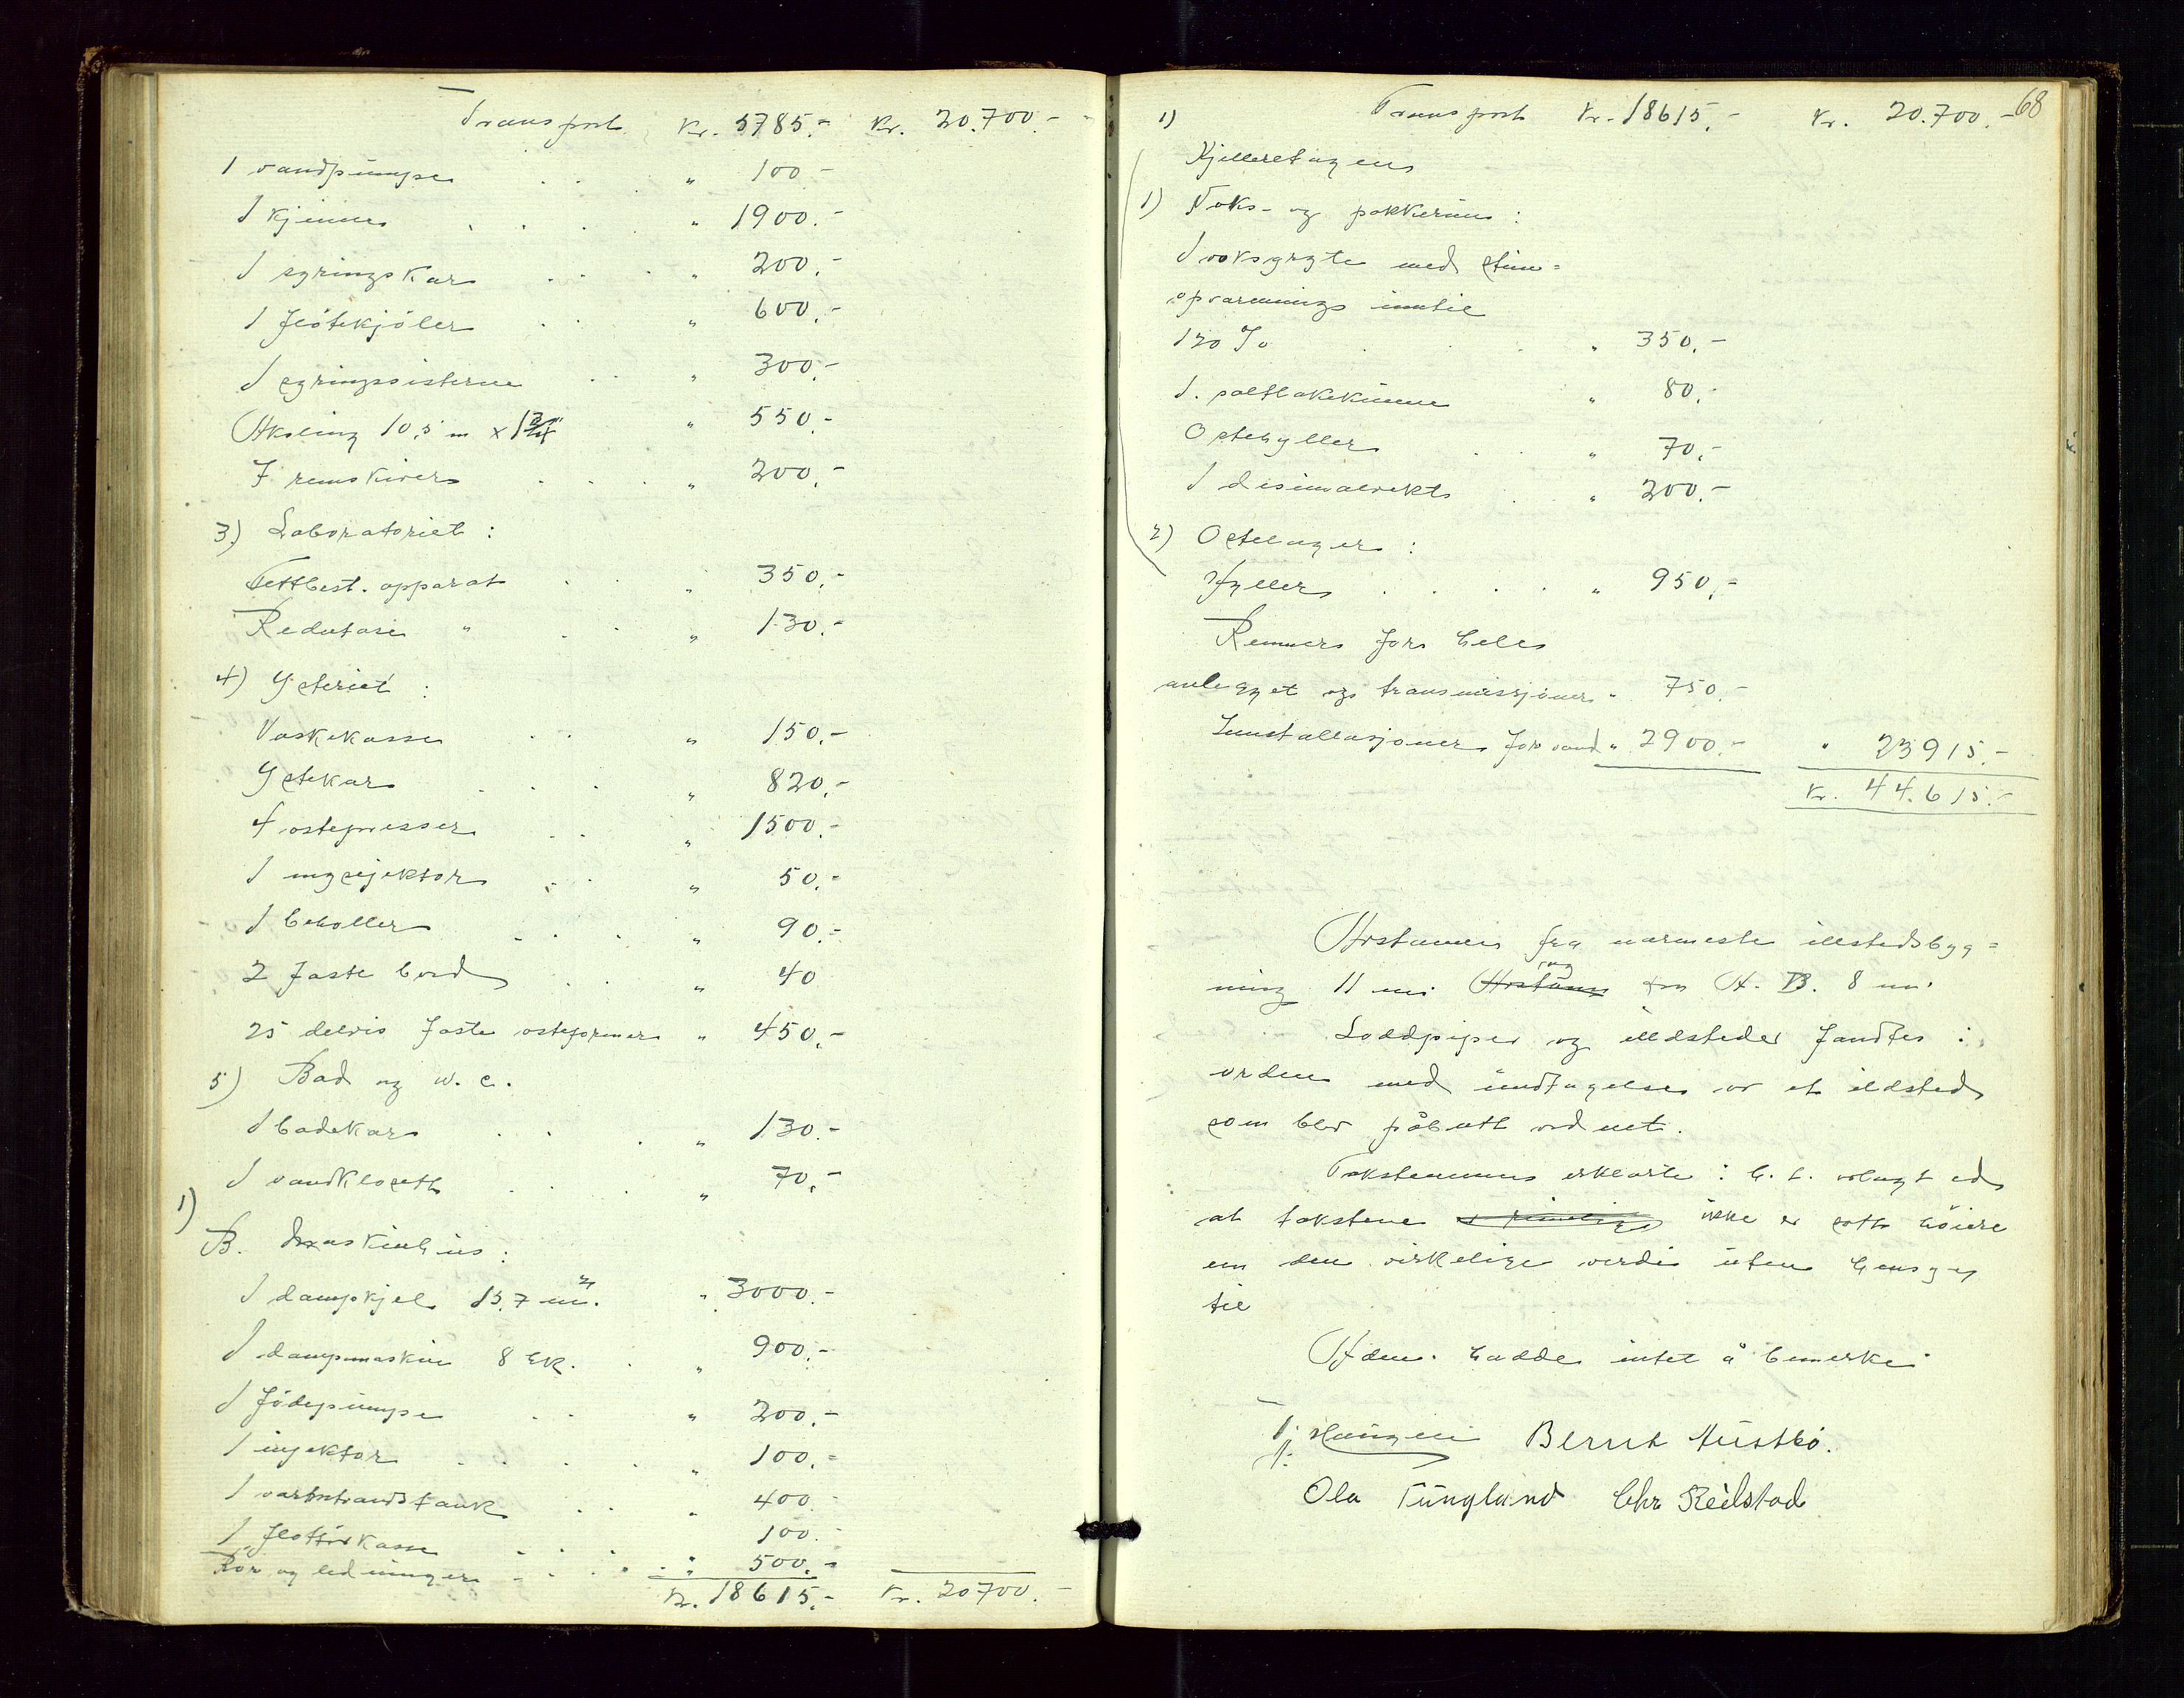 Transport Kr. 5785.- Kr. 20.700.-
1 vandpumpe . . " 100 -
1 Kjinne . . . . " 1900.-
1 syringskar . . . " 200.-
1 flötekjöler . . " 600.-
1 syringscisterne . . " 300.-
Aksling 10,5 m x 1 3/4" " 550.-
7 remskiver . . . . " 200.-
3.) Laboratoriet :
Fettbest. apparat . . " 350.-
Redutase " . . " 130.-
4) Ysteriet :
Vaskekasse . . " 150.-
Ystekar . . . " 820.-
4 ostepresser . . " 1500.-
1 mysejektor . . " 50.-
1 beholler . . . " 90.-
2 faste bord . . " 40
25 delvis faste osteformer " 450.-
5) Bad og w. c.
1 badekar . . . " 130.-
1 vandklosett . . . " 70.-
1)
B. Maskinhus :
1 dampkjel 15,7 m². " 3000.-
1 dampmaskin 8 Hk. . " 900.-
1 födepumpe . . " 200.-
1 injektor . . . . " 100.-
1 varmtvandstank . . " 400.-
1 kasse . . . 100.-
Rör og ledninger . . . . " 500.-
Kr. 18615.- Kr. 20700.-
68
1) Transport Kr. 18615.- Kr. 20.700.-
Kjelleretagen
1) Voks- og pakkerum :
1 voksgryte med stim=
opvarmnings inntil
120 % . . . " 350.-
1. saltlakekumme " 80.-
Ostehyller . . " 70.-
1 disimalvekt . " 200.-
2) Ostelager :
Hyller . . . . " 950.-
Remmer for hele
anlegget og transmissjoner " 750.-
Innstallasjoner for vand " 2900.- " 23915.-
Kr. 44.615.-
Avstanden fra narmeste illstedsbyg=
ning 11 m. Avstann fra A. B. 8 m.
Loddpiper og illdsteder fandtes i
orden med undtagelse av et ildsted
som blev påbutt ordnet.
Takstmennene erklarte : h. t. avlagt ed
at takstene er rimelige ikke er satt höiere
enn den virkelige verdi uten hensyn
til
Adm. hadde intet å bemerke.
Tj. Haugen Bernt Austbö.
Ola Tüngland Chr Reilstad